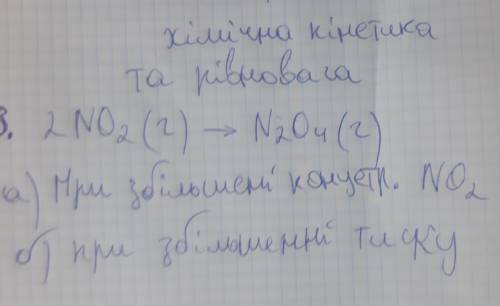 хімічна кінетика
та рівновага
3. 2NO₂(г) → N₂O₄(г)
а) При збільшені концетр. NO₂
б) при збільшенні тиску